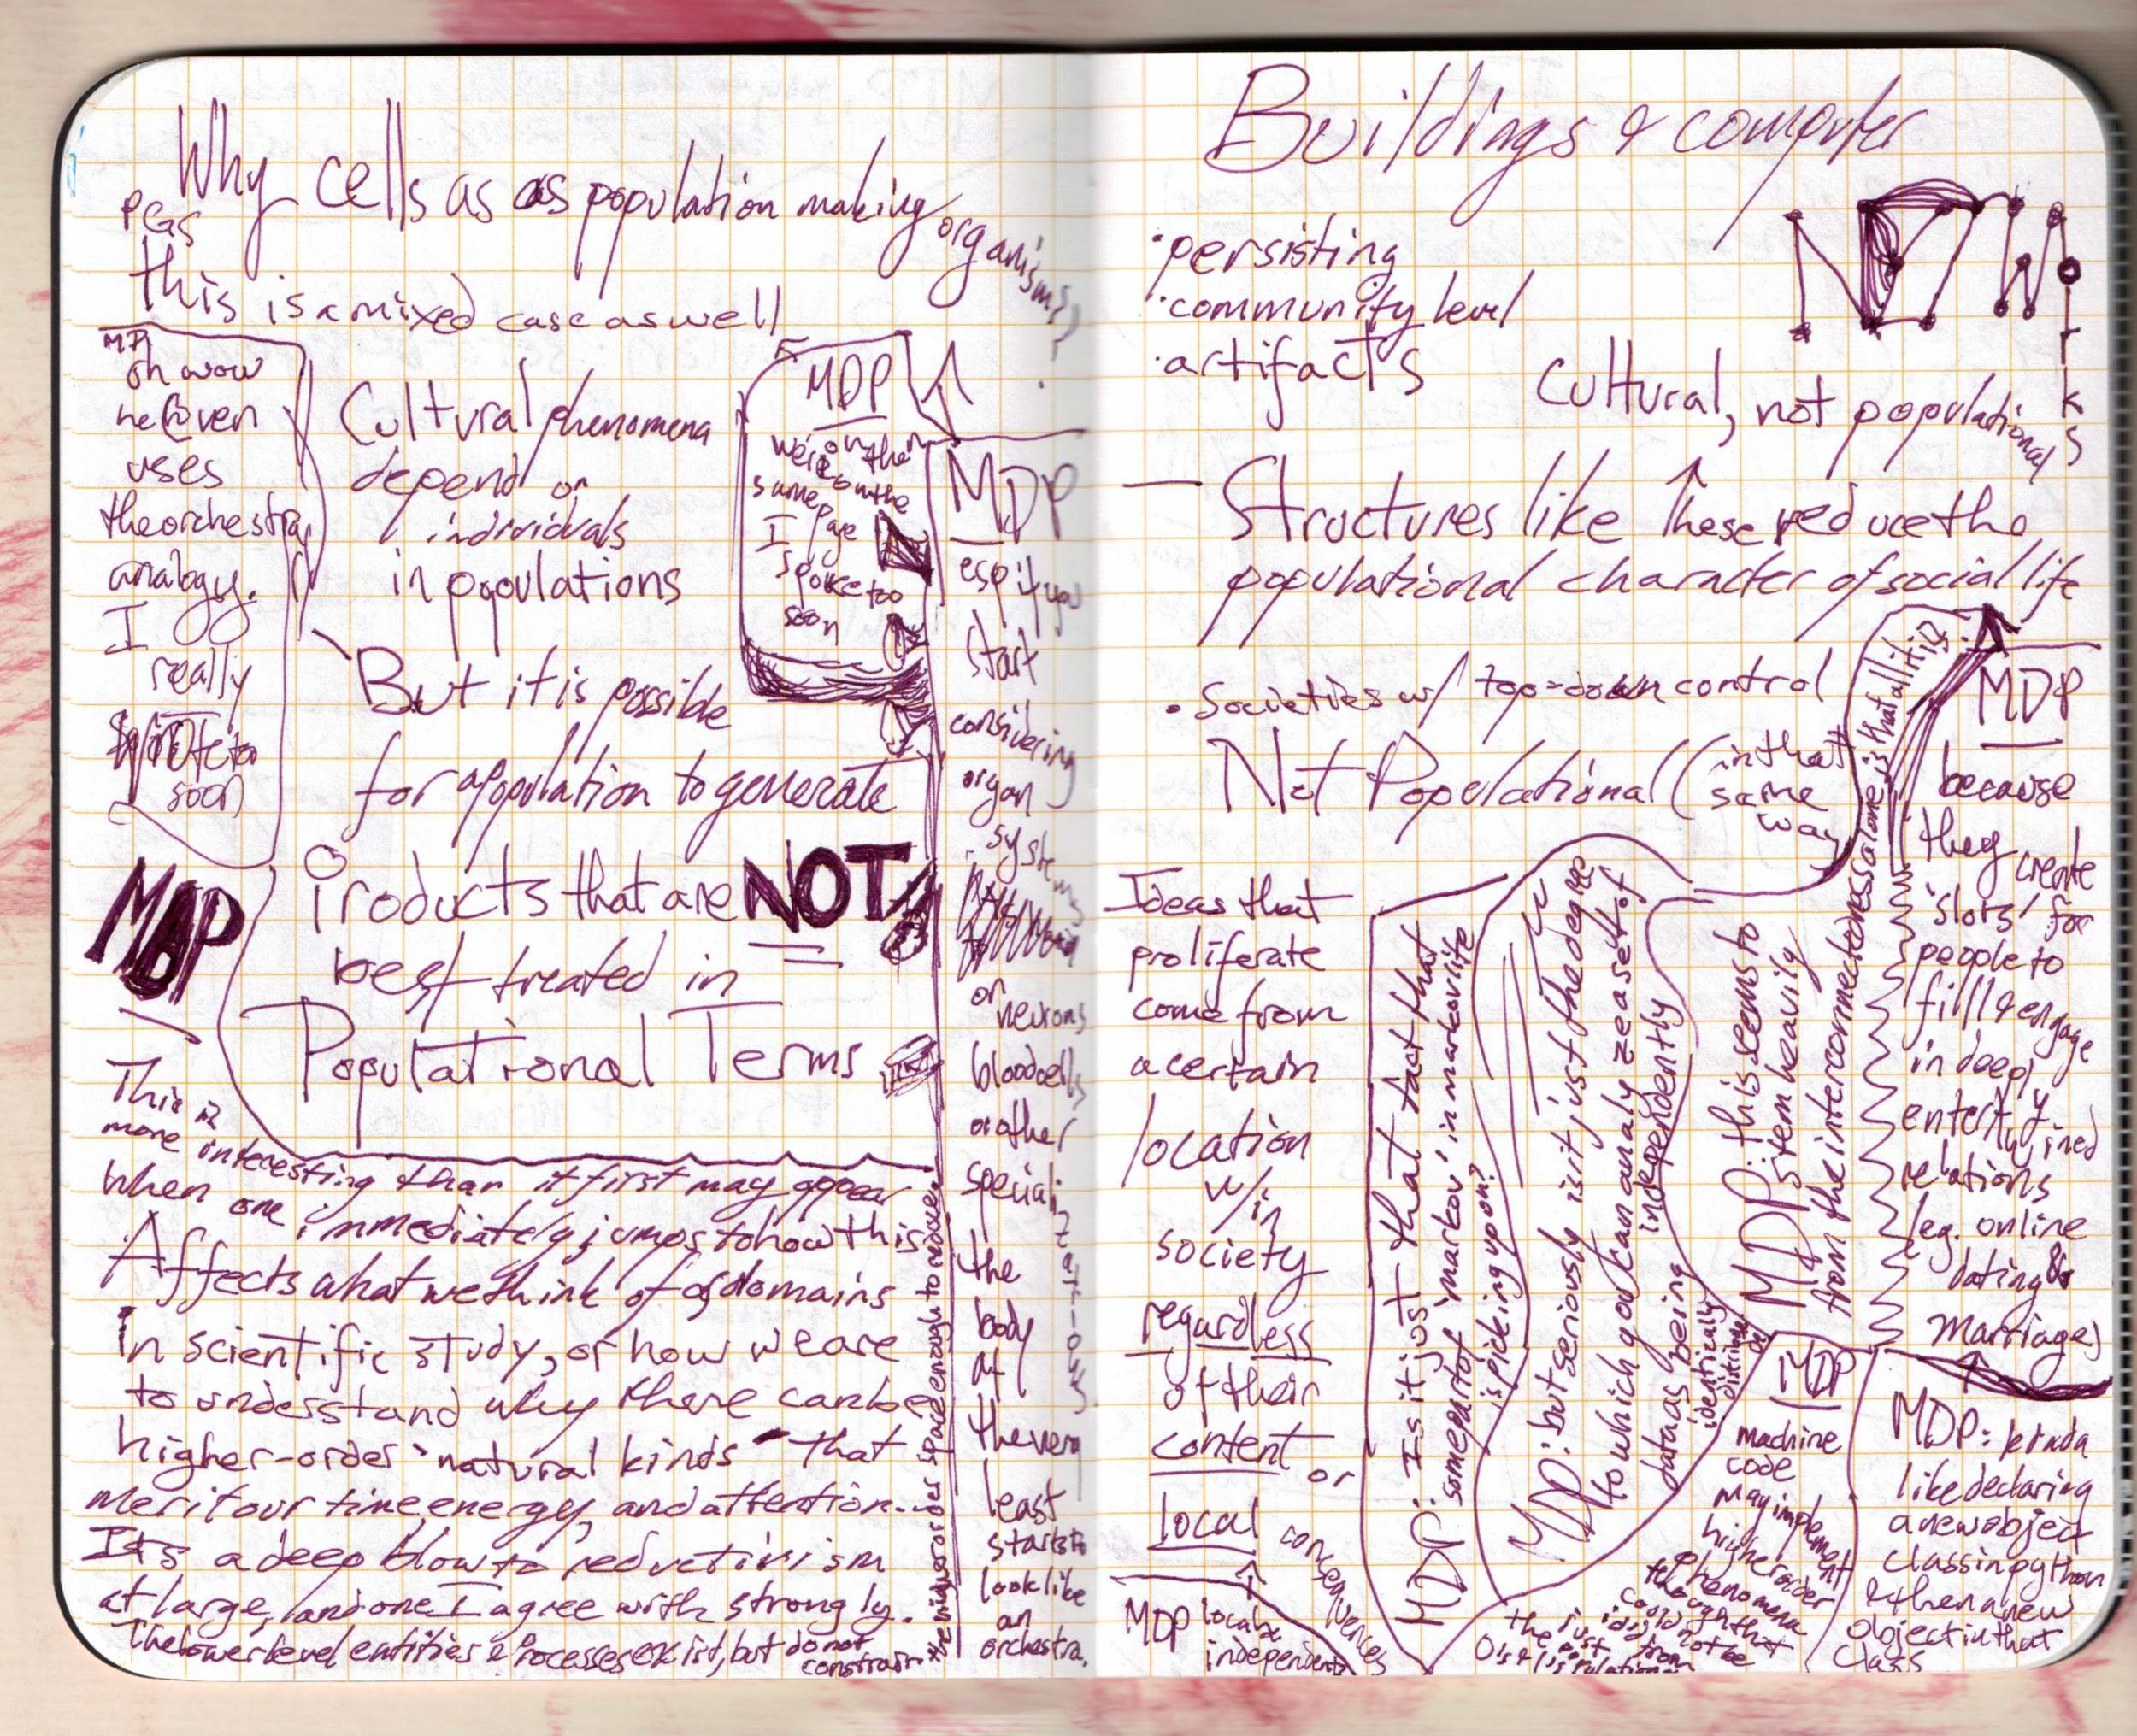 Why cells as as population making organisms?
PGS
this is a mixed case as well
MDP
oh wow
he even
uses
the orchestra
analogy.
I
really
spoke too
soon
Cultural phenomena
depend on
individuals
in populations
But it is possible
for a population to generate
Products that are NOT
best treated in
Populational Terms
MDP
we're on the
same page
I
spoke too
soon
MDP
esp if you
start
considering
organ
systems
or
neurons
blood cells
or other
specializations
the
body
at
the very
least
starts to
look like
an
orchestra.
MDP
This is
more interesting than it first may appear
when one immediately jumps to how this
Affects what we think of as domains
in scientific study, or how we are
to understand why there can be
higher-order "natural kinds" that
merit our time, energy, and attention...
It's a deep blow to reductivism
at large, and one I agree with strongly.
The lower level entities & processes exist, but do not
constrain
the higher order space enough to recover
Buildings & computer
NETWorks
·persisting
·community level
·artifacts
Cultural, not populational
— Structures like these reduce the
populational character of social life
· Societies w/ top-down control
Not Populational (in that
same
way
Ideas that
proliferate
come from
a certain
location
w/in
society
regardless
of their
content or
local consequences
MDP local &
independent
MDP: Is it just that fact that
some part of 'markov' in markov life
is picking up on?
MDP: but seriously isit just the degree
to which you can analyze a set of
data as being independently
identically
MDP: this seems to
stem heavily
from the interconnectedness alone is that all it is?
MDP
because
they create
'slots' for
people to
fill & engage
in deeply
entertwined
relations
(eg. online
dating &
marriages)
MDP
machine
code
may implement
higher order
phenomena
though that
could not be
MDP: kinda
like declaring
a new object
class in python
& then a new
object in that
class